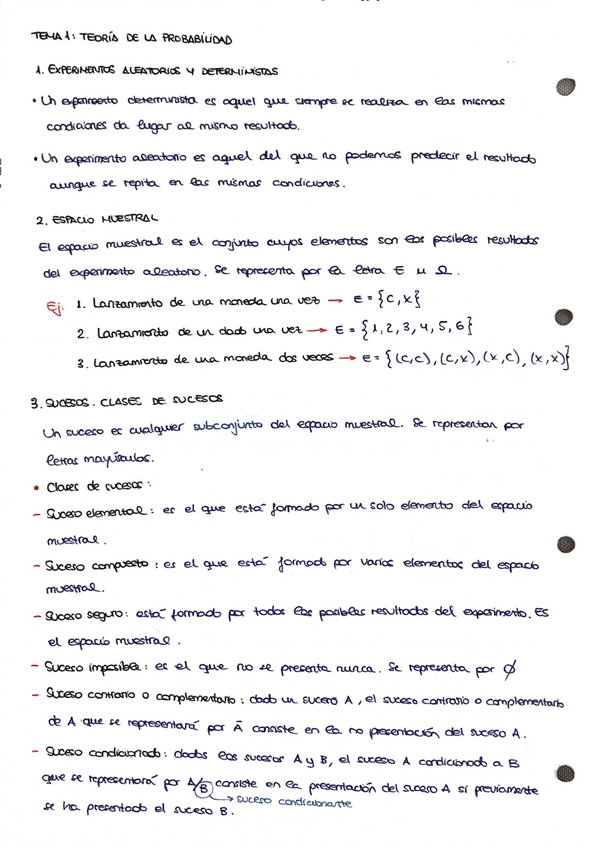 TEMA 1: TEORÍA DE LA PROBABILIDAD
1. EXPERIMENTOS ALEATORIOS Y DETERMINISTAS
• Un experimento determinista es aquel que siempre se realiza en las mismas
condiciones da lugar al mismo resultado.
• Un experimento aleatorio es aquel del que no podemos predecir el resultado
aunque se repita en las mismas condiciones.
2. ESPACIO MUESTRAL
El espacio muestral es el conjunto cuyos elementos son los posibles resultados
del experimento aleatorio. Se representa por la letra E μ Ω.
Ej: 1. Lanzamiento de una moneda una vez → E = {C, X}
2. Lanzamiento de un dado una vez → E = {1, 2, 3, 4, 5, 6}
3. Lanzamiento de una moneda dos veces → E = {(C,C), (C,X), (X,C), (X,X)}
3. SUCESOS. CLASES DE SUCESOS
Un suceso es cualquier subconjunto del espacio muestral. Se representan por
letras mayúsculas.
• Clases de sucesos:
- Suceso elemental: es el que está formado por un solo elemento del espacio
muestral.
- Suceso compuesto: es el que está formado por varios elementos del espacio
muestral.
- Suceso seguro: está formado por todos los posibles resultados del experimento. ES
el espacio muestral.
- Suceso imposible: es el que no se presenta nunca. Se representa por Ø
- Suceso contrario o complementario: dado un suceso A, el suceso contrario o complementario
de A que se representará por Ā consiste en la no presentación del suceso A.
- Suceso condicionado: dados los sucesos A y B, el suceso A condicionado a B
que se representará por A/B consiste en la presentación del suceso A si previamente
→ suceso condicionante
se ha presentado el suceso B.